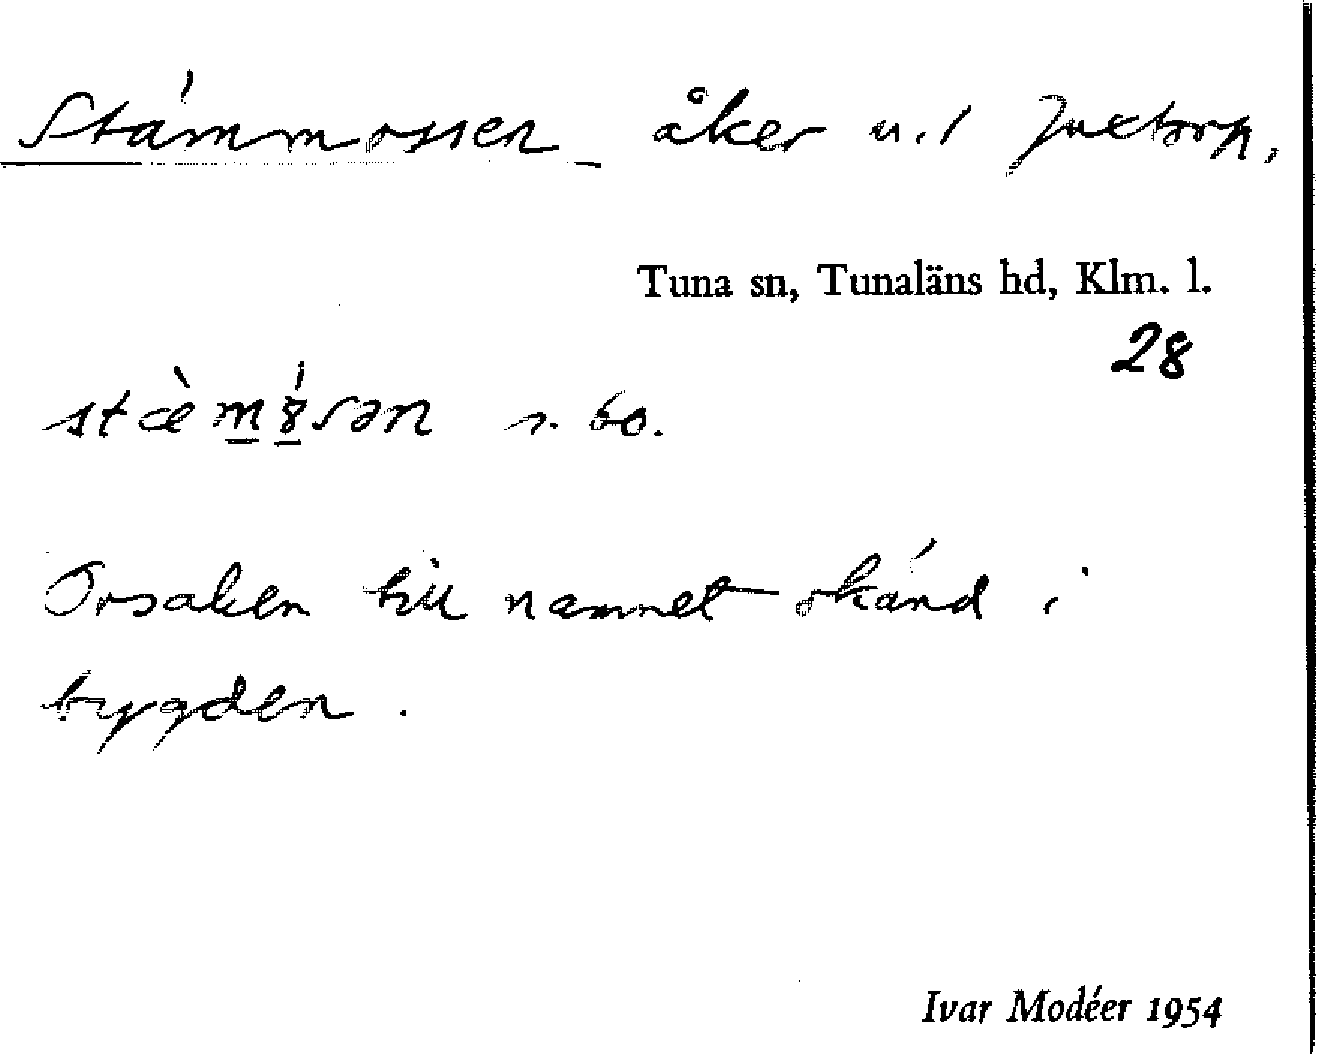 Stämmossen åker u.l Juetorp,
Tuna sn, Tunaläns hd, Klm. l.
28
stæ̀m̲ó̲sən s. bo.
Orsaken till namnet okänd i
bygden.
Ivar Modéer 1954